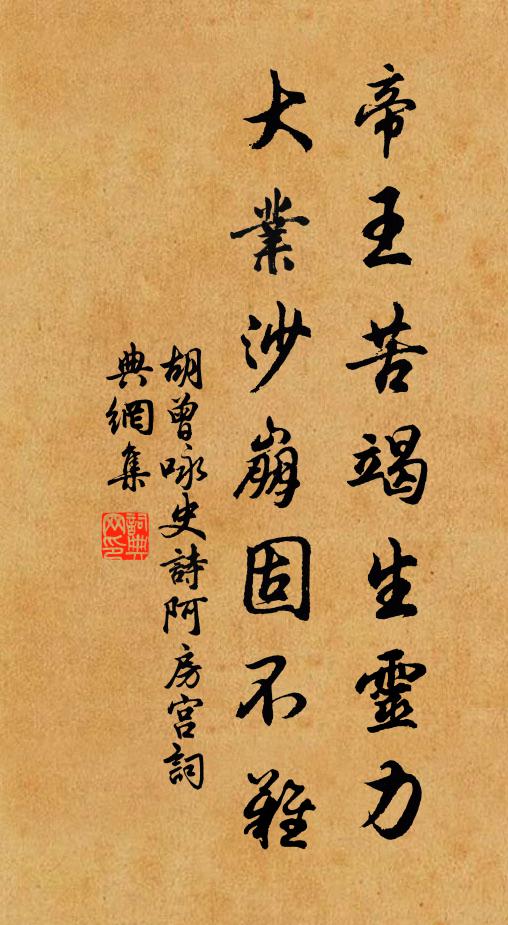 帝王苦竭生靈力
大業沙崩固不難
胡曾咏史詩阿房宮詞
典網集
詞典網印